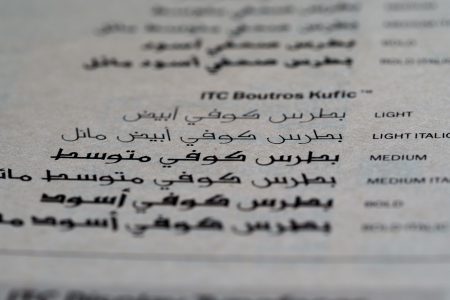 MEDIUM
بطرس صحفي أسود BOLD
بطرس صحفي أسود مائل BOLD ITALIC
ITC Boutros Kufic™
بطرس كوفي أبيض LIGHT
بطرس كوفي أبيض مائل LIGHT ITALIC
بطرس كوفي متوسط MEDIUM
بطرس كوفي متوسط مائل MEDIUM ITA
بطرس كوفي أسود BOLD
بطرس كوفي أسود مائل BOLD ITALIC